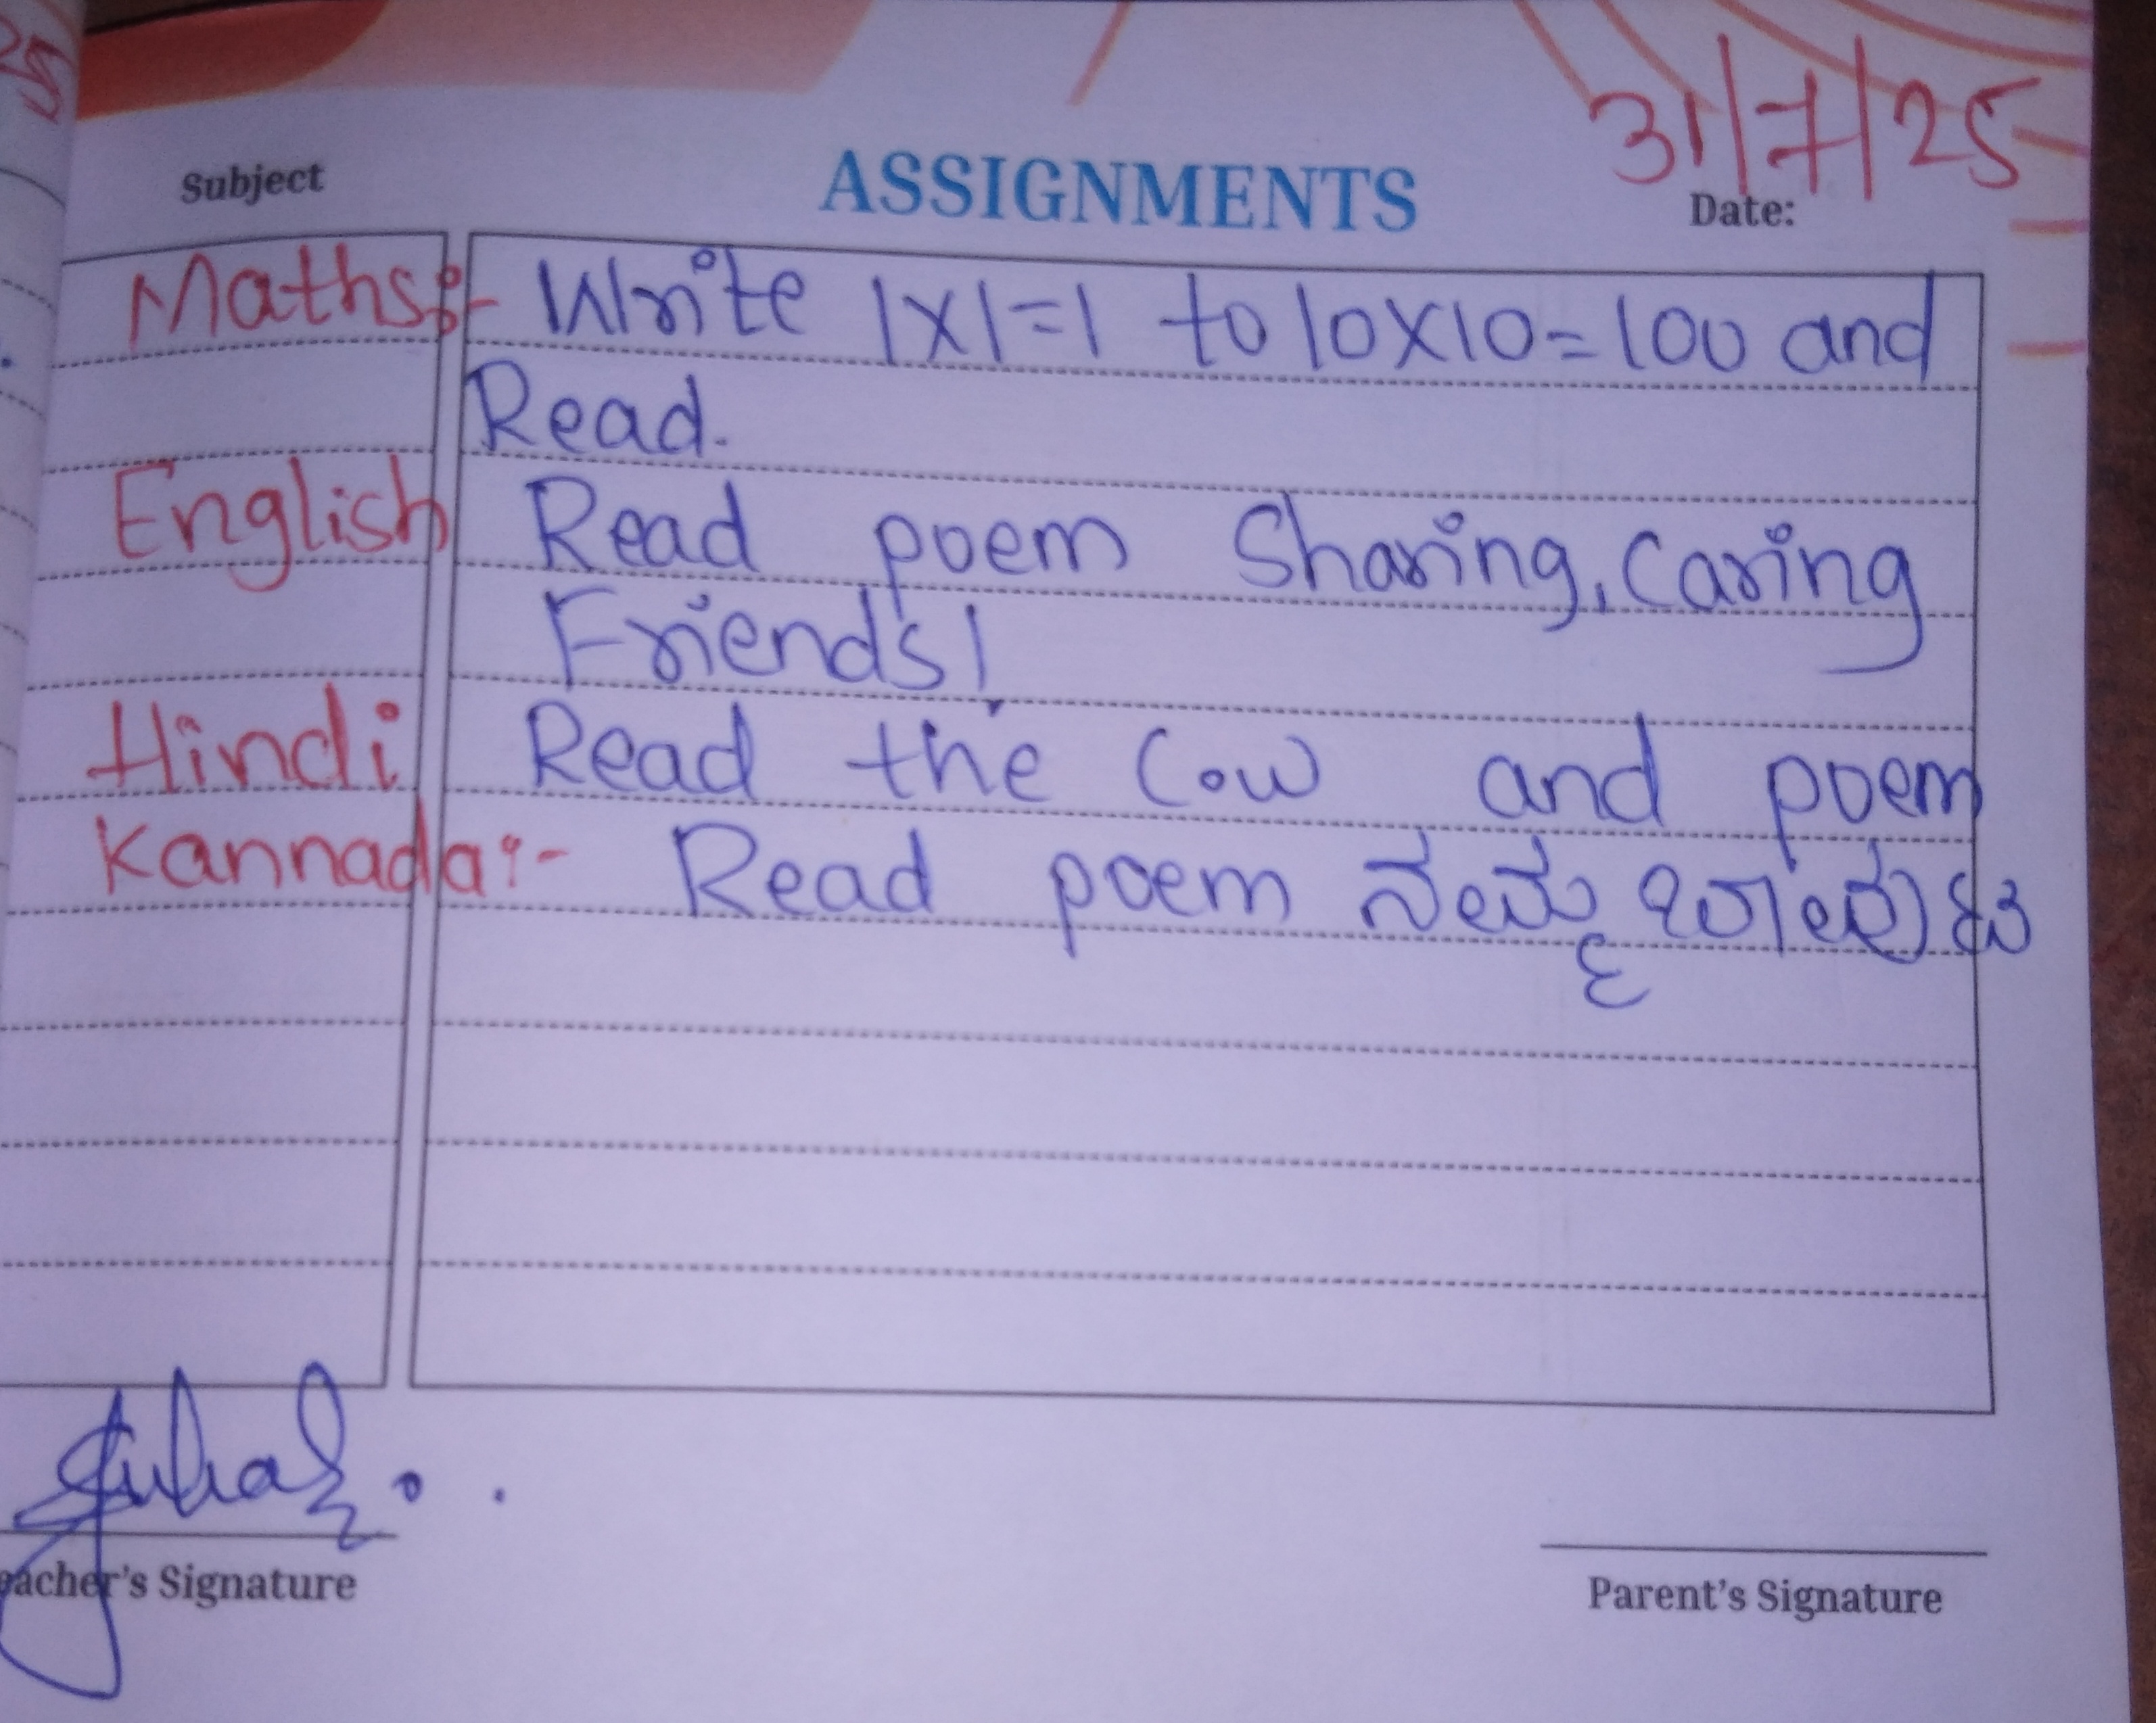 25
Subject
ASSIGNMENTS
31/7/25
Date:
Maths:- Write 1x1=1 to 10x10=100 and
Read.
English Read poem Sharing, Caring
Friends!
Hindi Read the Cow and poem
Kannada:- Read poem ನಮ್ಮ
Teacher's Signature
Parent's Signature